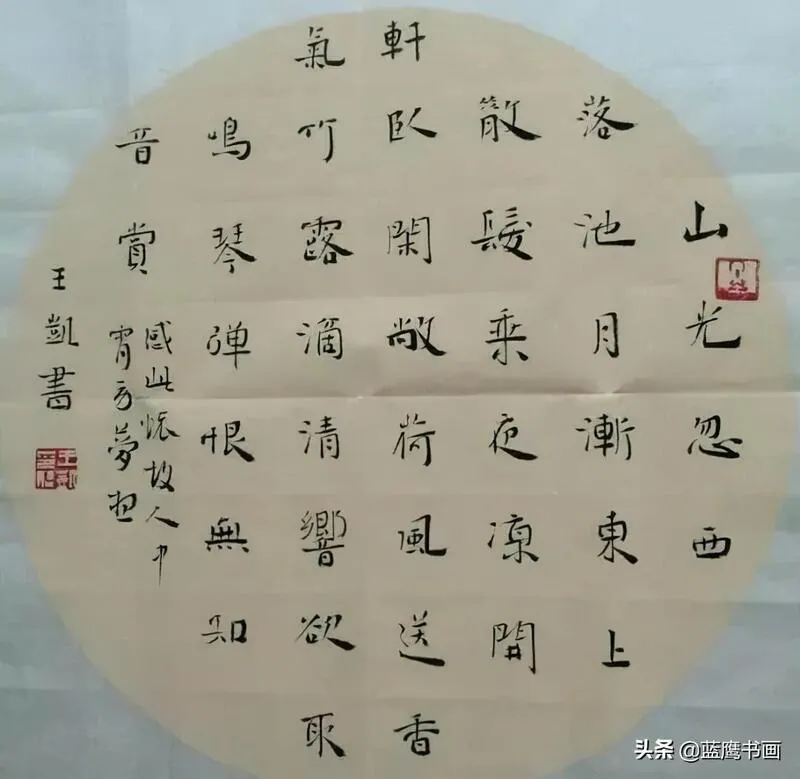 山光忽西
落池月漸東上
散髮乘夜凉開
軒臥閑敞荷風送香
氣竹露滴清響欲取
鳴琴弹恨無知
音賞
感此懷故人中
宵勞夢想
王凱書
头条 @蓝鹰书画